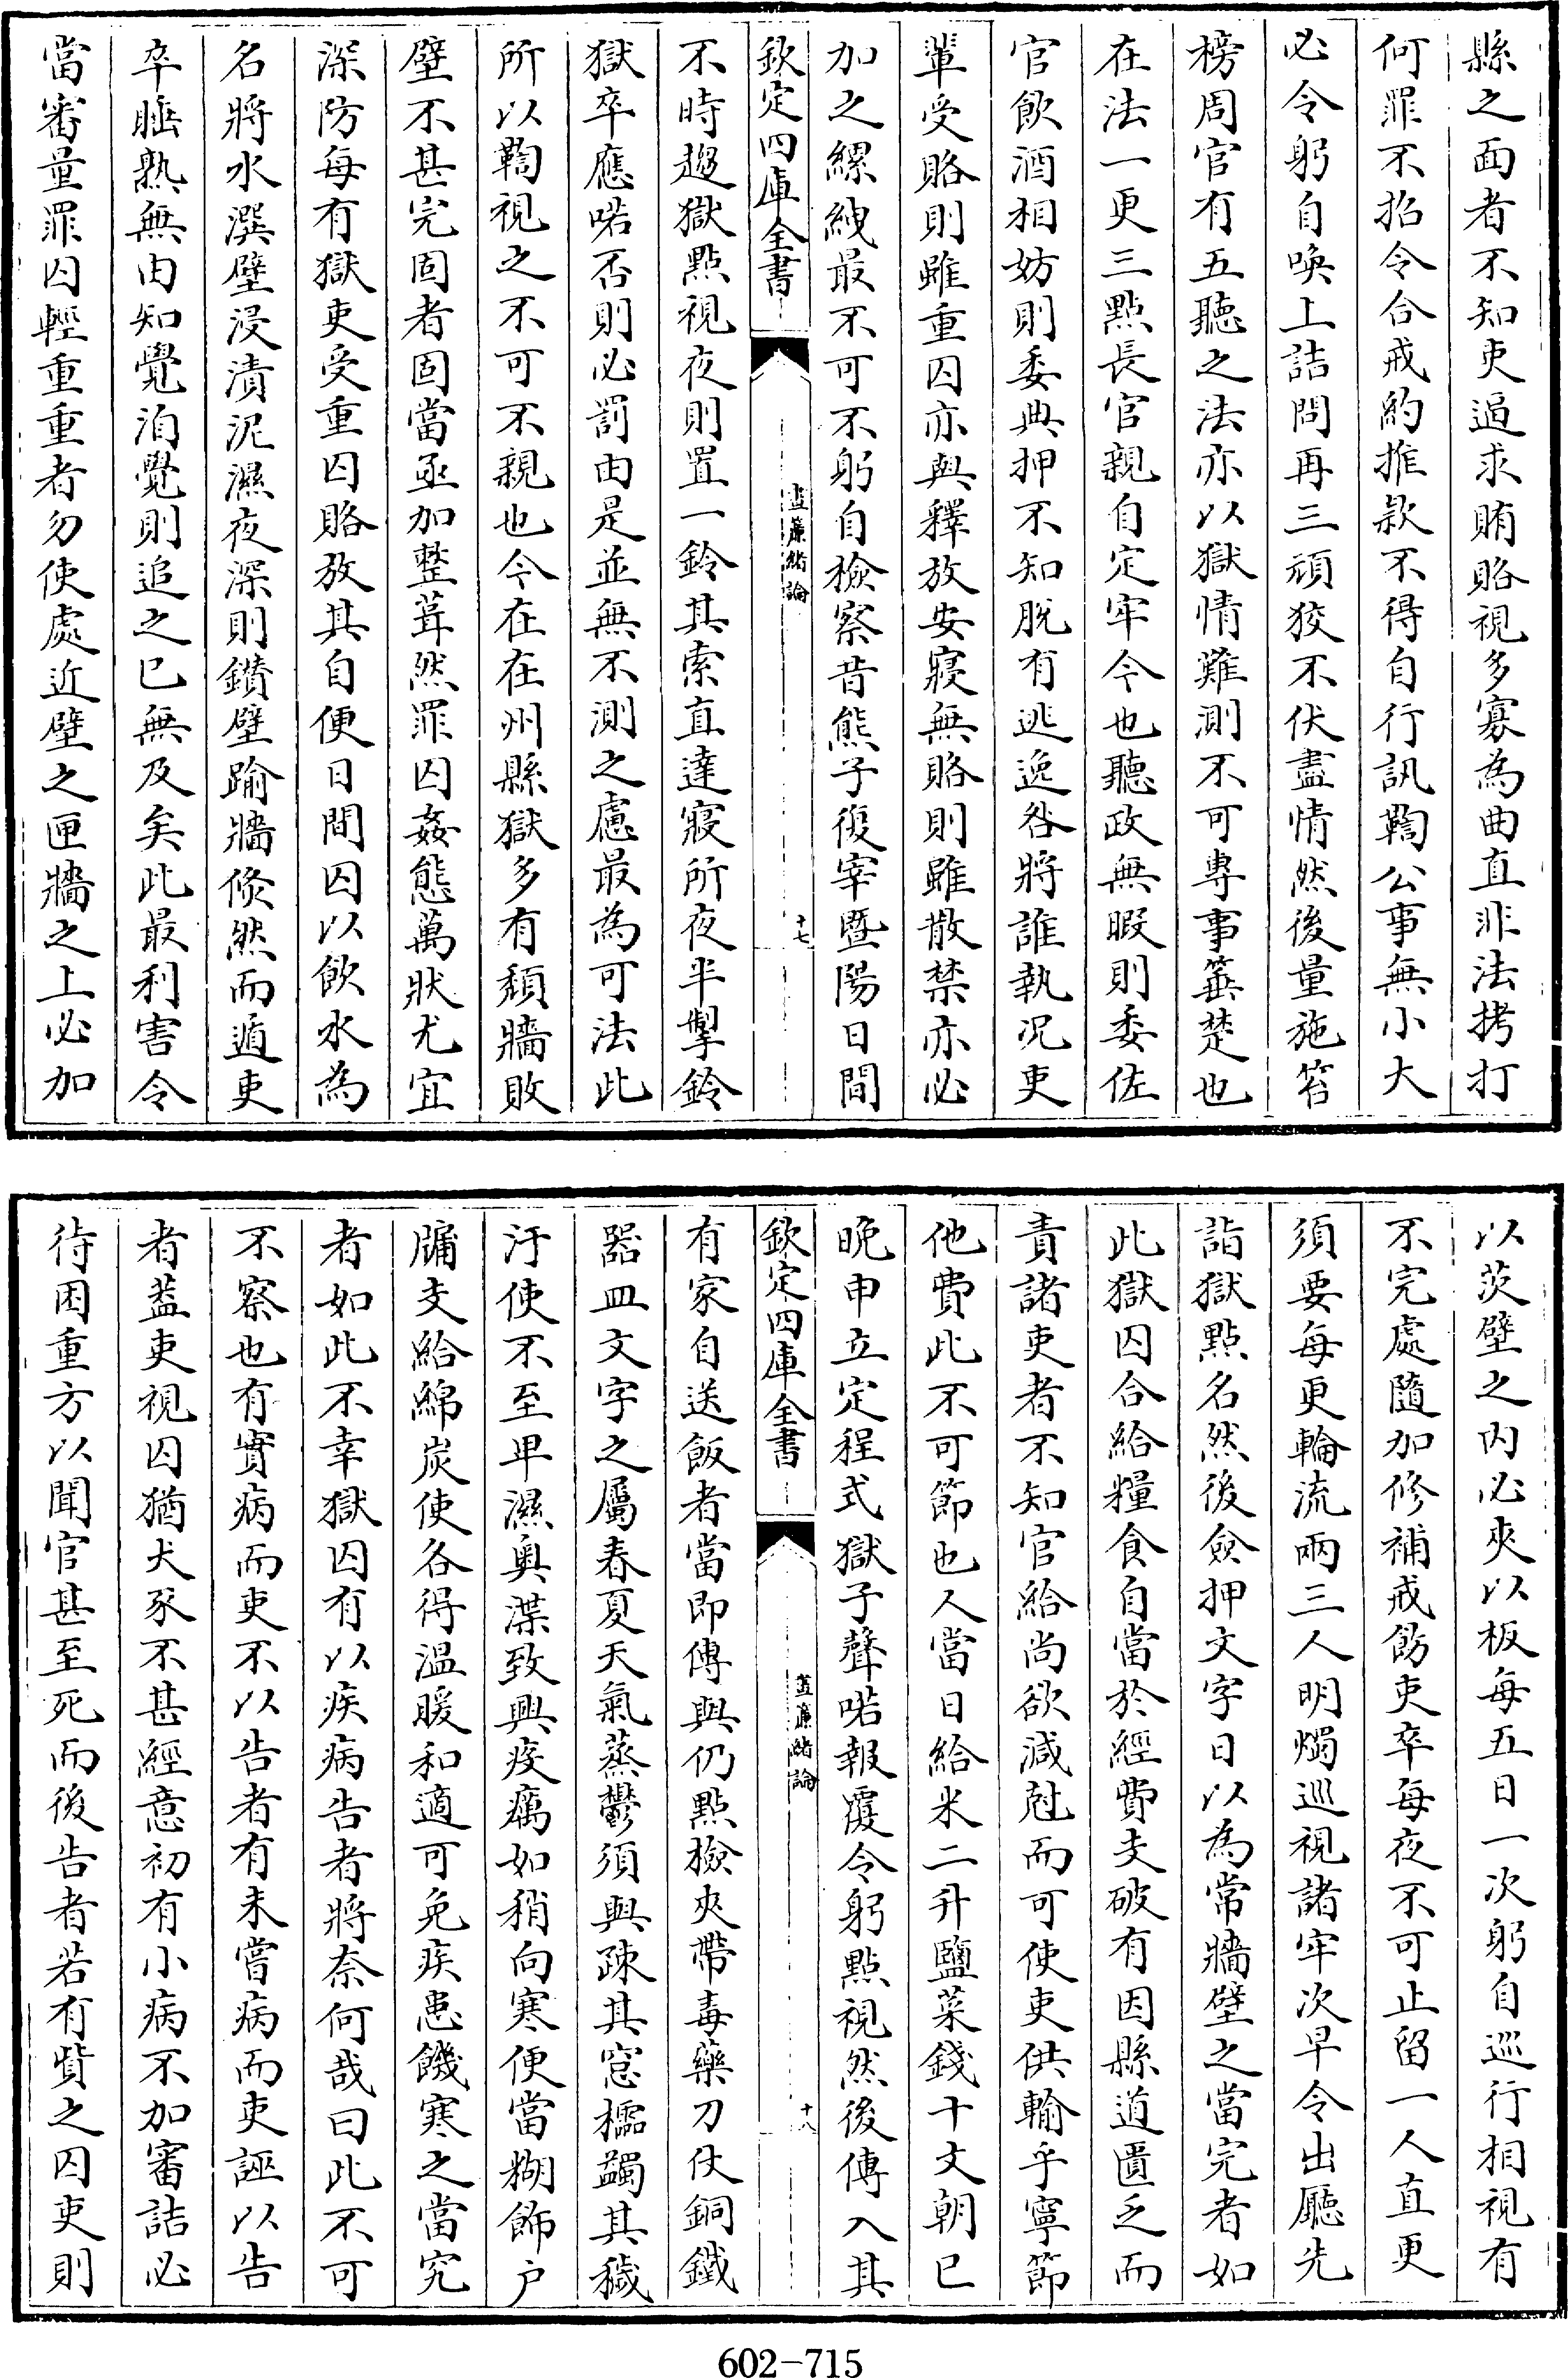 縣之面者不知吏逼求賄賂視多寡為曲直非法拷打
何罪不招令合戒約推款不得自行訊鞫公事無小大
必令躬自喚上詰問再三頑狡不伏盡情然後量施笞
榜周官有五聽之法亦以獄情難測不可專事箠楚也
在法一更三點長官親自定牢今也聽政無暇則委佐
官飲酒相妨則委典押不知脱有逃逸咎將誰執况吏
輩受賂則雖重囚亦與釋放安寢無賂則雖散禁亦必
加之縲絏最不可不躬自檢察昔熊子復宰暨陽日間
欽定四庫全書
晝簾緒論
十七
不時趨獄點視夜則置一鈴其索直達寢所夜半掣鈴
獄卒應喏否則必罰由是並無不測之慮最為可法此
所以鞫視之不可不親也今在在州縣獄多有頹牆敗
壁不甚完固者固當亟加整葺然罪囚姦態萬狀尤宜
深防每有獄吏受重囚賂放其自便日間囚以飲水為
名將水潠壁浸漬泥濕夜深則鑚壁踰牆倐然而遁吏
卒睡熟無由知覺洎覺則追之已無及矣此最利害令
當審量罪囚輕重重者勿使處近壁之匣牆之上必加
以茨壁之内必夾以板每五日一次躬自巡行相視有
不完處隨加修補戒飭吏卒每夜不可止留一人直更
須要每更輪流兩三人明燭巡視諸牢次早令出廳先
詣獄點名然後僉押文字日以為常牆壁之當完者如
此獄囚合給糧食自當於經費支破有因縣道匱乏而
責諸吏者不知官給尚欲減尅而可使吏供輸乎寧節
他費此不可節也人當日給米二升鹽菜錢十文朝已
晚申立定程式獄子聲喏報覆令躬點視然後傳入其
欽定四庫全書
晝簾緒論
十八
有家自送飯者當即傳與仍點檢夾帶毒藥刀仗銅鐵
器皿文字之屬春夏天氣蒸鬱須與疎其窻櫺蠲其穢
汙使不至卑濕奥渫致興疫癘如稍向寒便當糊飾户
牖支給綿炭使各得温暖和適可免疾患饑寒之當究
者如此不幸獄囚有以疾病告者將奈何哉曰此不可
不察也有實病而吏不以告者有未嘗病而吏誣以告
者葢吏視囚猶犬豕不甚經意初有小病不加審詰必
待困重方以聞官甚至死而後告者若有貲之囚吏則
602-715